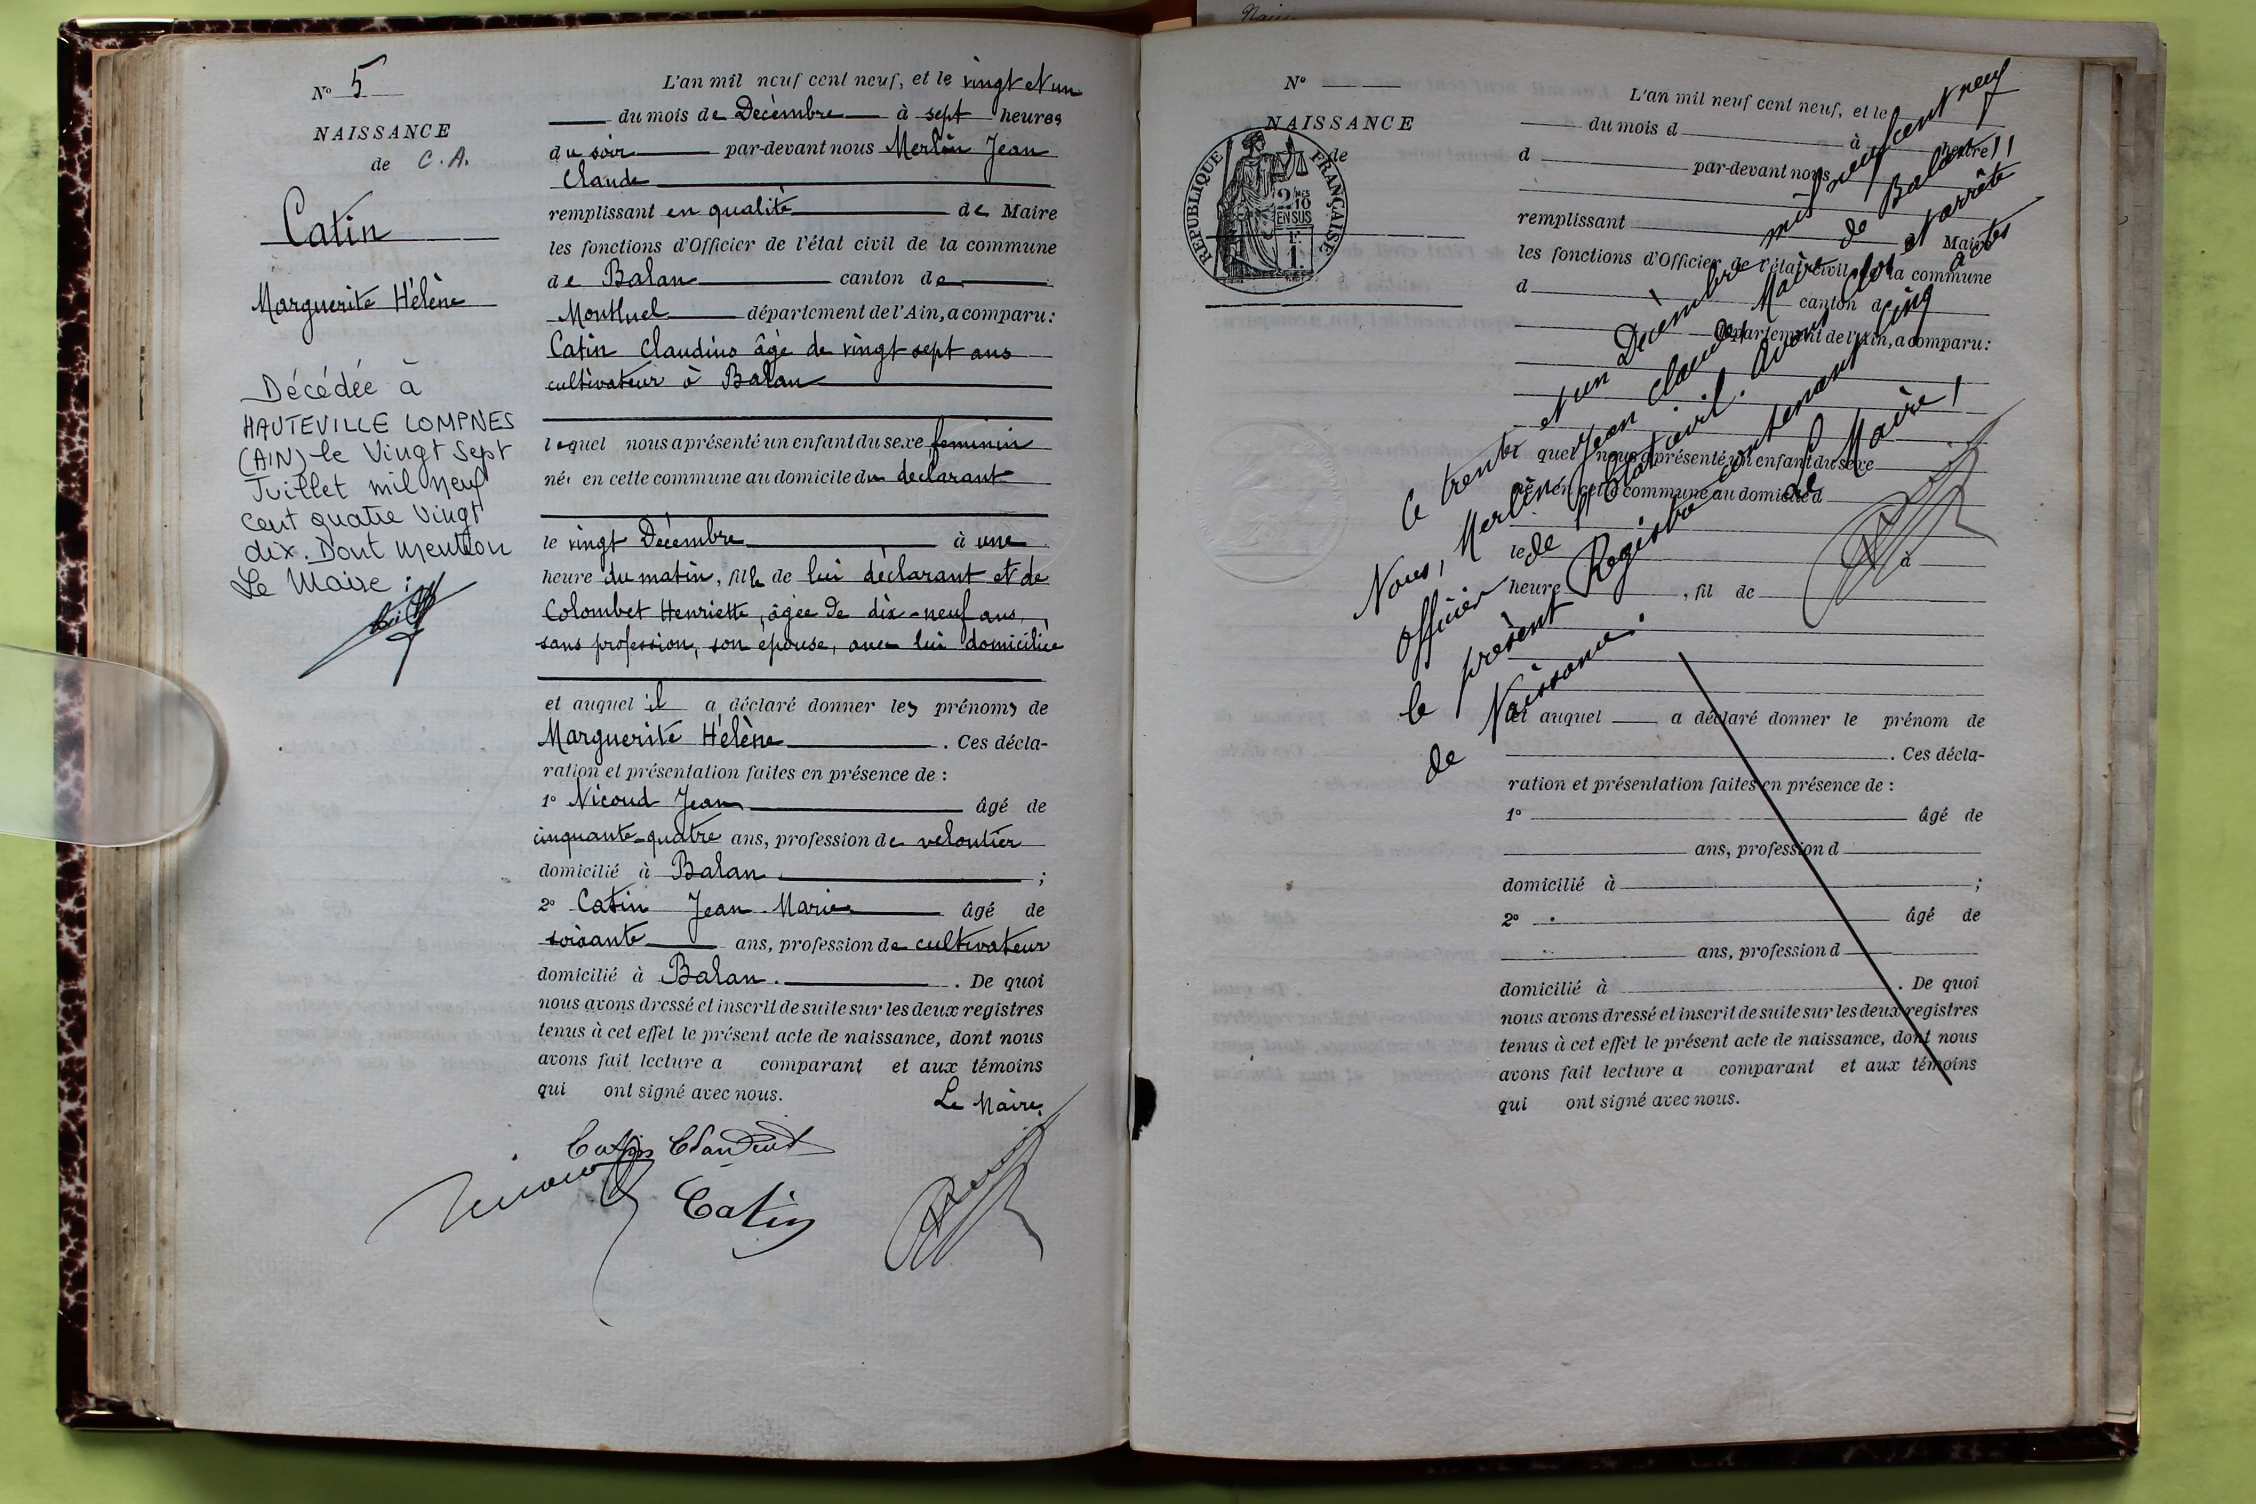 N° 5
NAISSANCE
de C. A.
Catin
Marguerite Hélène
Décédée à
HAUTEVILLE LOMPNES
(AIN) le Vingt Sept
Juillet mil neuf
cent quatre vingt
dix. Dont mention
Le Maire :
L'an mil neuf cent neuf, et le vingt et un
du mois de Decèmbre à sept heures
du soir par-devant nous Merlin Jean
Claude
remplissant en qualité de Maire
les fonctions d'Officier de l'état civil de la commune
de Balan canton de
Montluel département de l'Ain, a comparu :
Catin Claudius âgé de vingt sept ans
cultivateur à Balan
lequel nous a présenté un enfant du sexe feminin
né en cette commune au domicile du declarant
le vingt Decèmbre à une
heure du matin, fille de lui déclarant et de
Colombet Henriette, âgée de dix-neuf ans,
sans profession, son epouse, avec lui domiciliée
et auquel il a déclaré donner les prénoms de
Marguerite Hélène. Ces décla-
ration et présentation faites en présence de :
1° Nicoud Jean âgé de
cinquante-quatre ans, profession de veloutier
domicilié à Balan ;
2° Catin Jean Marie âgé de
soixante ans, profession de cultivateur
domicilié à Balan. . De quoi
nous avons dressé et inscrit de suite sur les deux registres
tenus à cet effet le présent acte de naissance, dont nous
avons fait lecture a comparant et aux témoins
qui ont signé avec nous.
Le Maire.
Catin Claudius
Nicoud
Catin
N°
NAISSANCE
de
RÉPUBLIQUE FRANÇAISE
2/10
EN SUS
L'an mil neuf cent neuf, et le
du mois d à heure
d par-devant nous
remplissant Maire
les fonctions d'Officier de l'état civil de la commune
d canton d
département de l'Ain, a comparu :
quel nous a présenté un enfant du sexe
né en cette commune au domicile d
le à
heure , fil de
et auquel a déclaré donner le prénom de
. Ces décla-
ration et présentation faites en présence de :
1° âgé de
ans, profession d
domicilié à ;
2° âgé de
ans, profession d
domicilié à . De quoi
nous avons dressé et inscrit de suite sur les deux registres
tenus à cet effet le présent acte de naissance, dont nous
avons fait lecture a comparant et aux témoins
qui ont signé avec nous.
Ce trente et un Decèmbre mil neuf cent neuf
Nous, Merlin Jean Claude, Maire de Balan,
officier de l'Etat civil. Avons clos et arrêté
le présent Registre contenant cinq actes
de Naissance.
Le Maire,